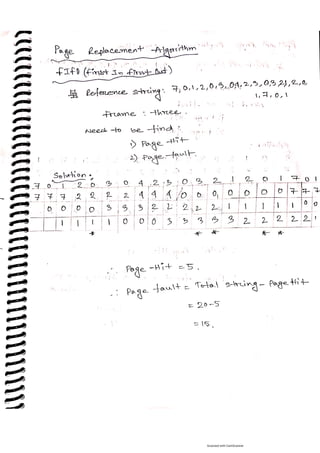 Page Replacement Algorithm
FIFO (First In First Out)
Reference string: 7,0,1,2,0,3,0,4,2,3,0,3,2,1,2,0,
1,7,0,1
Frame : three.
Need to be find :
1) Page Hit
2) Page fault
Solution:
7 0 1 2 0 3 0 4 2 3 0 3 2 1 2 0 1 7 0 1
7 7 7 2 2 2 2 4 4 4 0 0 0 0 0 0 0 7 7 7
0 0 0 0 3 3 3 2 2 2 2 2 1 1 1 1 1 0 0
1 1 1 1 0 0 0 3 3 3 3 3 2 2 2 2 2 1
* * * * *
∴ Page-Hit = 5.
∴ Page fault = Total string - Page Hit
= 20-5
= 15.
Scanned with CamScanner